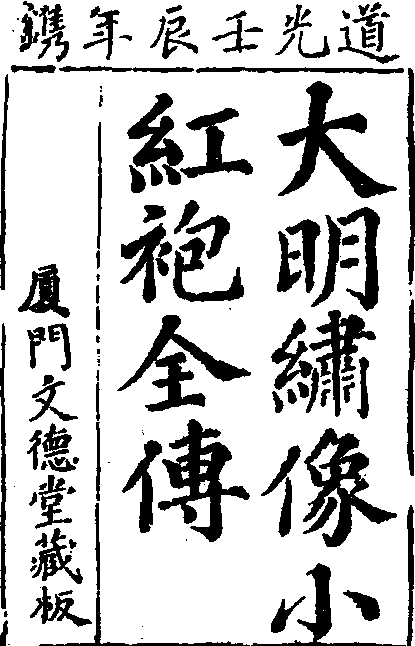 道光壬辰年鐫
大明繡像小
紅袍全傳
厦門文德堂藏板